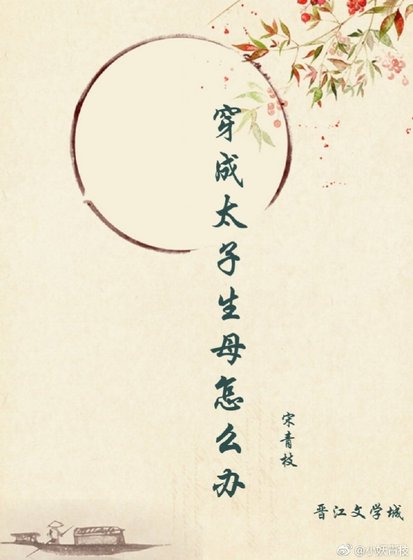 穿成太子生母怎么办
宋青枝
晋江文学城